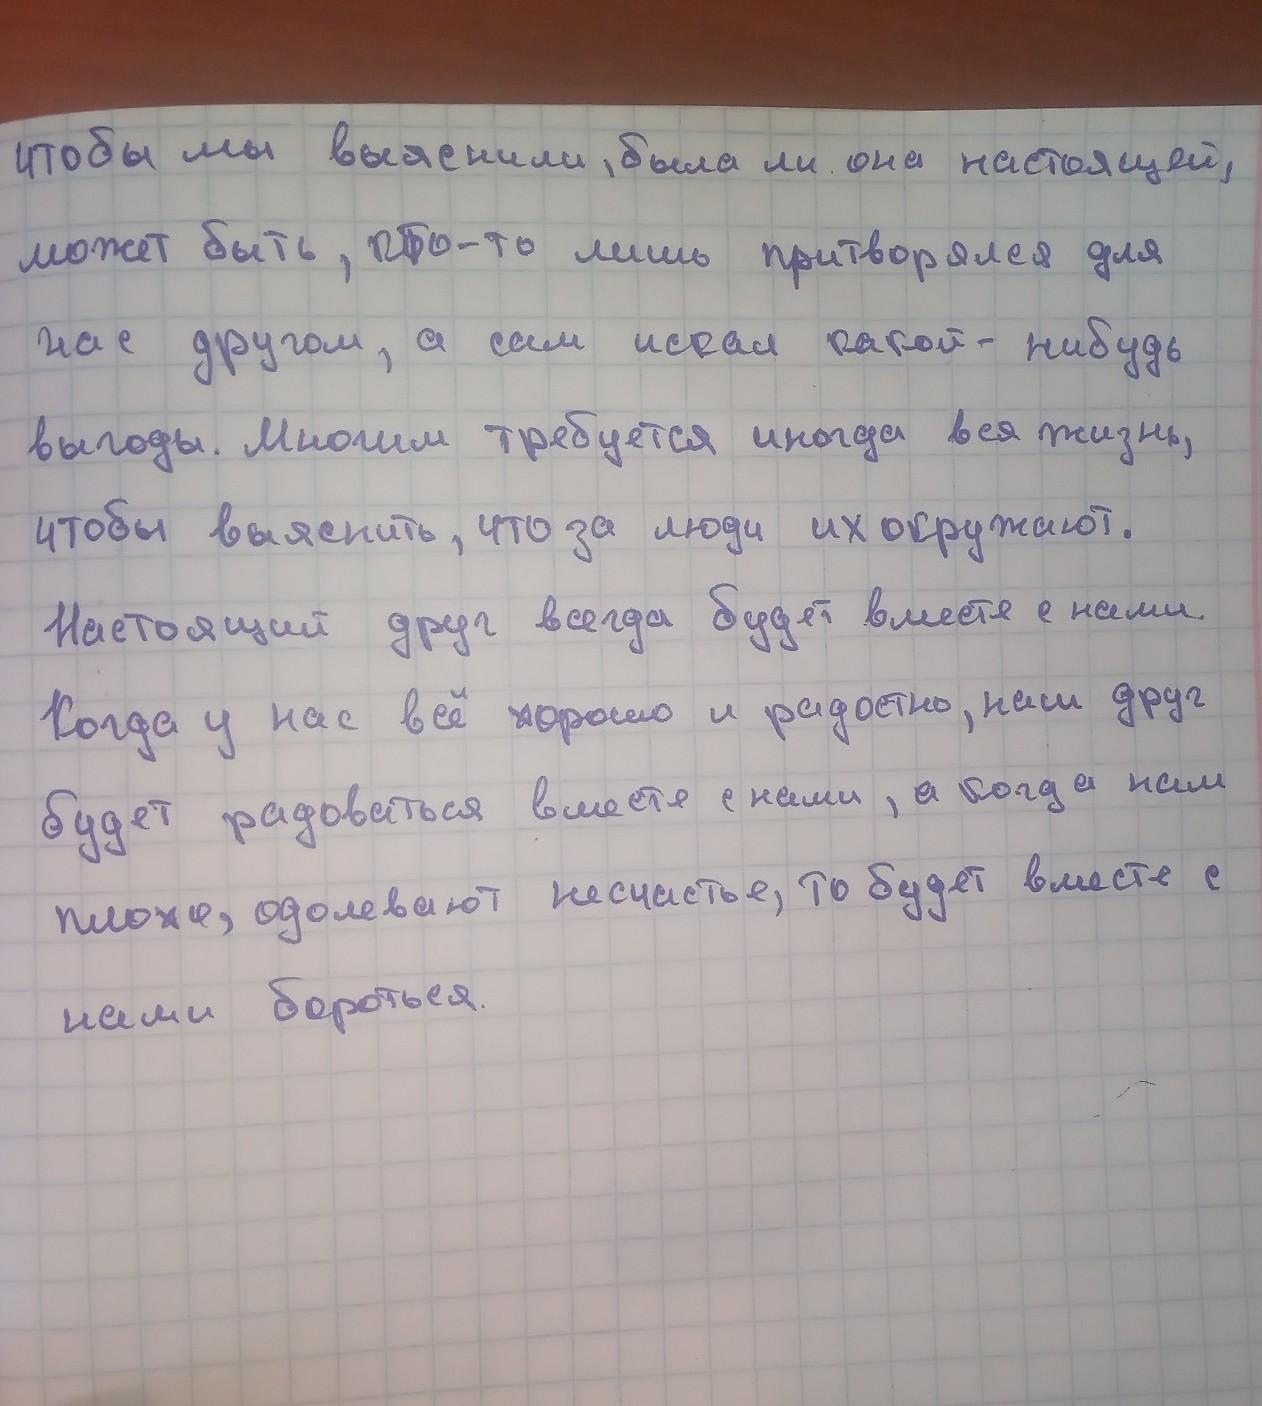 чтобы мы выяснили, была ли она настоящей,
может быть, кто-то лишь притворялся для
нас другом, а сам искал какой-нибудь
выгоды. Многим требуется иногда вся жизнь,
чтобы выяснить, что за люди их окружают.
Настоящий друг всегда будет вместе с нами.
Когда у нас всё хорошо и радостно, наш друг
будет радоваться вместе с нами, а когда нам
плохо, одолевают несчастье, то будет вместе с
нами бороться.